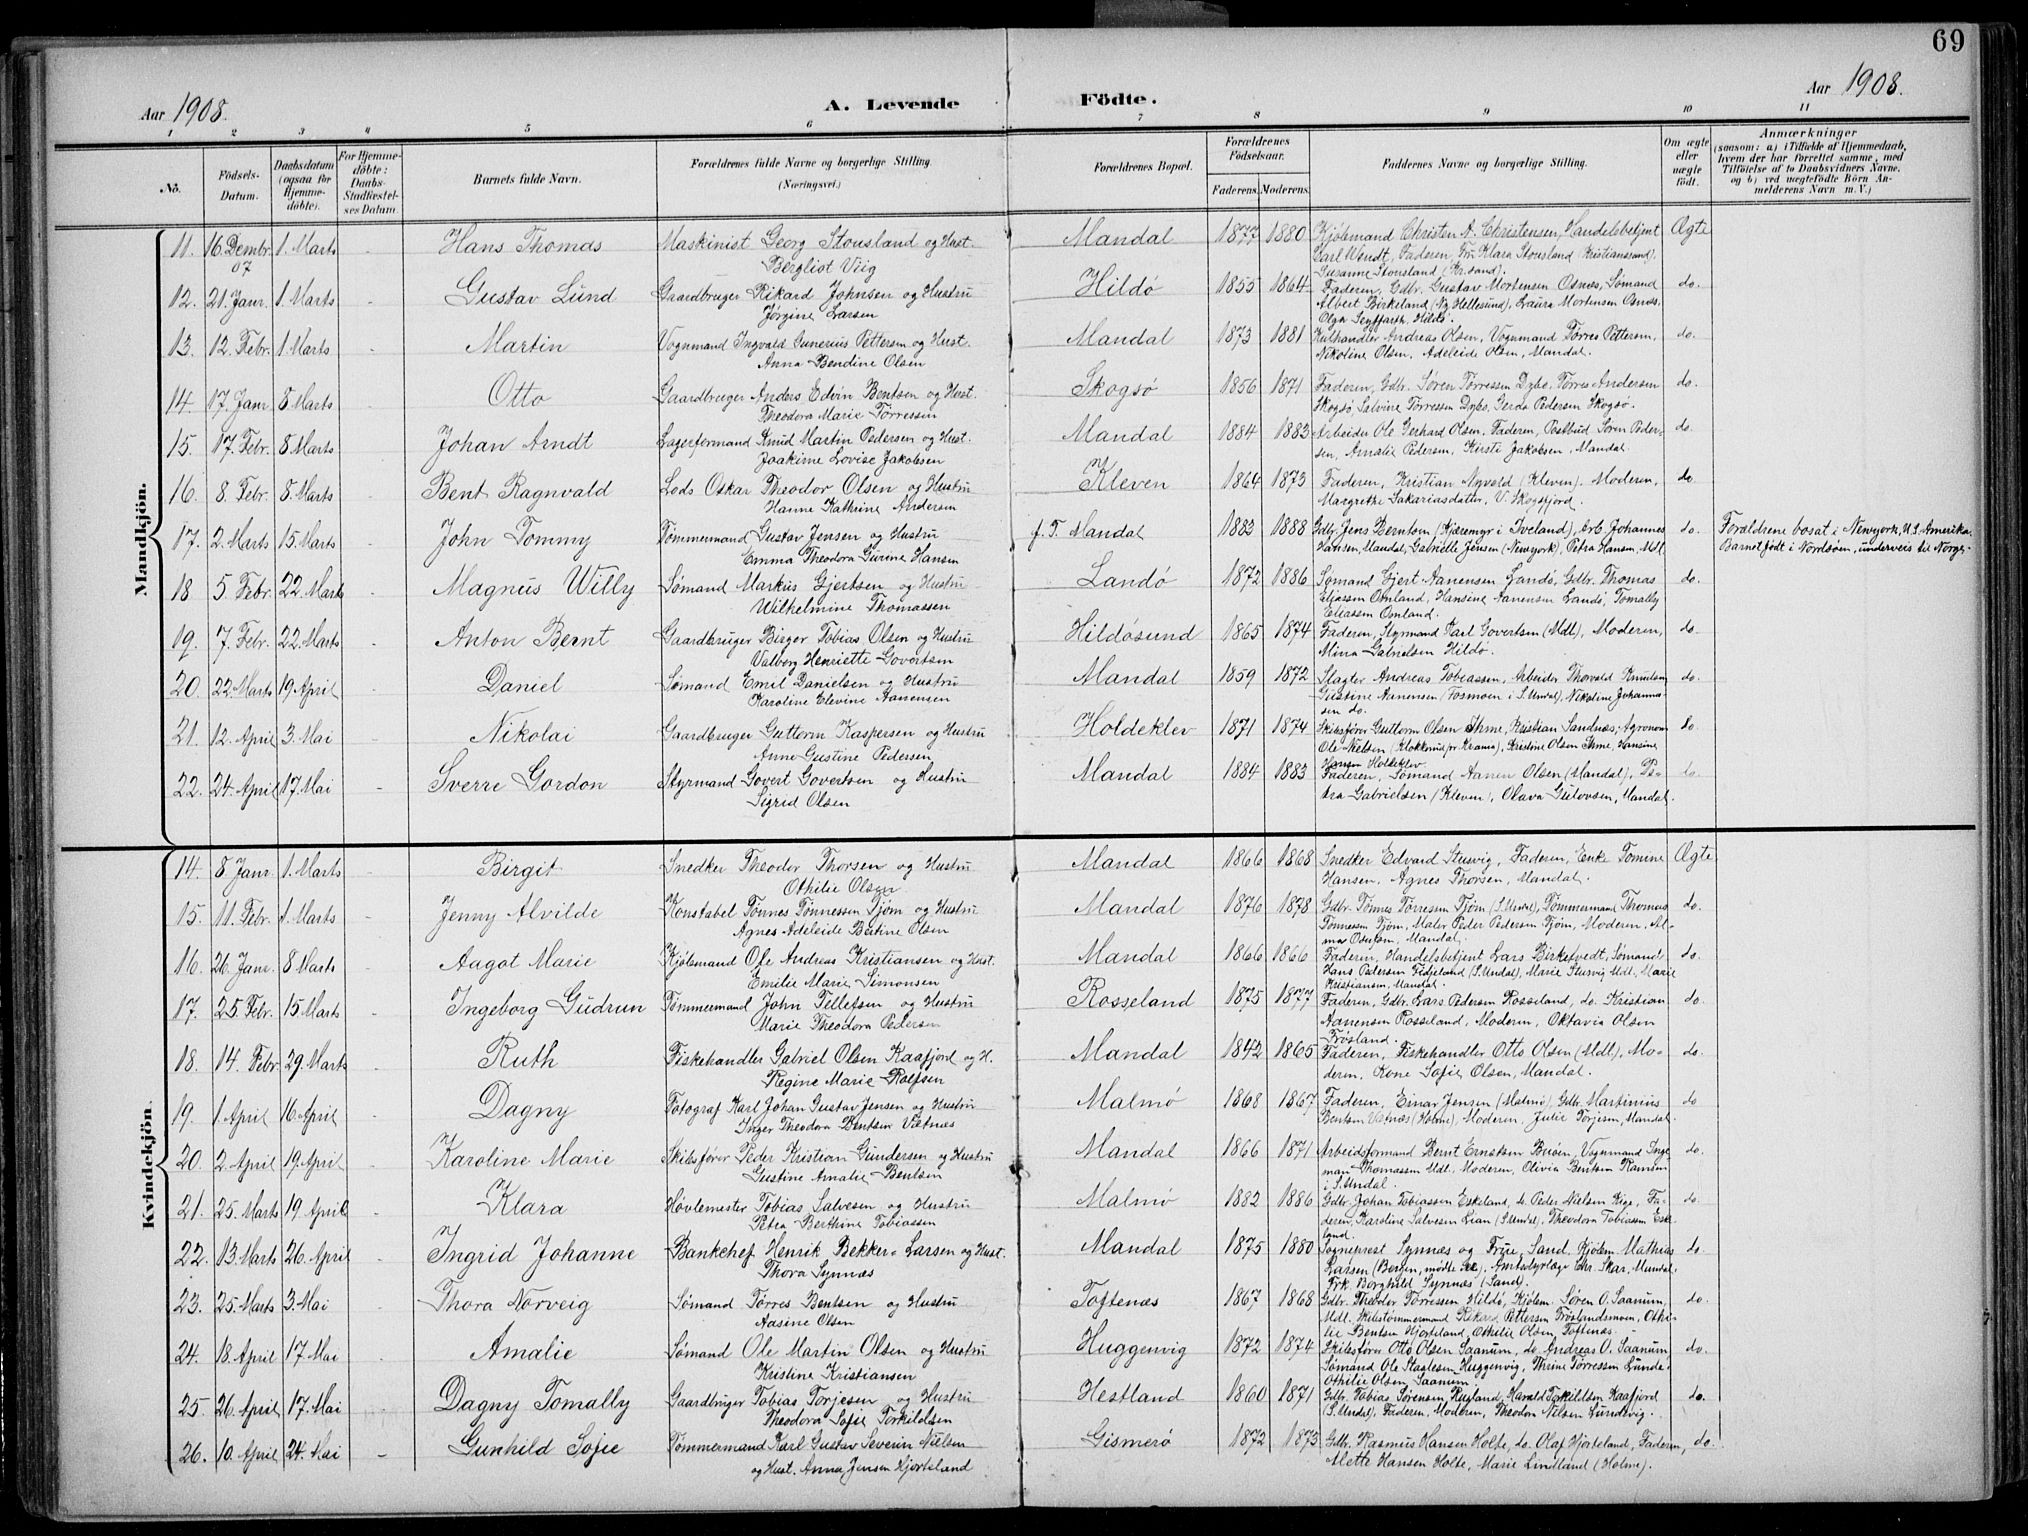 69
Aar 1908. A. Levende Födte. Aar 1908.
1 2 3 4 5 6 7 8 9 10 11
No. Födsels-Datum. Daabsdatum (ogsaa for Hjemme-döbte). For Hjemme-döbte: Daabs-Stadfæstel-ses Datum. Barnets fulde Navn. Forældrenes fulde Navne og borgerlige Stilling. (Næringsvei.) Forældrenes Bopæl. Forældrenes Födselsaar. Faderens. Moderens. Faddernes Navne og borgerlige Stilling. Om ægte eller uægte födt. Anmærkninger (saasom: a) i Tilfælde af Hjemmedaab, hvem der har forrettet samme, med Tilföielse af to Daabsvidners Navne, og b) ved uægtefödte Börn An-melderens Navn m. V.)
Mandkjön.
11. 16 Dembr. 07 1. Marts - Hans Thomas Maskinist Georg Stousland og Hust. Mandal 1877 1880 Kjøbmand Christen A. Christensen, Handelsbetjent Ægte
Bergliot Viig Carl Wendt, Faderen, Fru Klara Stousland (Kristianssand),
Susanne Stousland (Kr.sand).
12. 21. Janr. 1. Marts - Gustav Lund Gaardbruger Rikard Johnsen og Hustru Hildø 1855 1864 Faderen, Gdbr. Gustav Mortensen Osnæs, Sømand do.
Jørgine Larsen Albert Birkeland (Ny Hellesund), Laura Mortensen Osnæs,
Olga Seyffarth, Hildø.
13. 12. Febr. 1. Marts - Martin Vognmand Ingvald Gunerius Pettersen og Hust. Mandal 1873 1881 Kulhandler Andreas Olsen, Vognmand Tørres Pettersen, do.
Anna Bendine Olsen Nikoline Olsen, Adeleide Olsen, Mandal.
14. 17. Janr. 8. Marts - Otto Gaardbruger Anders Edvin Bentsen og Hust. Skogsø 1856 1871 Faderen, Gdbr. Søren Tørressen Dybo, Tørres Andersen do.
Theodora Marie Tørressen Skogsø, Salvine Tørressen Dybo, Gerda Pedersen Skogsø.
15. 17. Febr. 8. Marts Johan Arndt Lagerformand Knud Martin Pedersen og Hust. Mandal 1884 1883 Arbeider Ole Gerhard Olsen, Faderen, Postbud Søren Peder- do.
Joakime Lovise Jakobsen sen, Amalie Pedersen, Kirsti Jakobsen, Mandal.
16. 8. Febr. 8. Marts - Bent Ragnvald Lods Oskar Theodor Olsen og Hustru Kleven 1864 1873 Faderen, Kristian Nyvold (Kleven). Moderen, do.
Hanne Kathrine Andersen Margrethe Sakariasdatter, V. Skogsfjord.
17. 2. Marts 15. Marts - John Tommy Tømmermand Gustav Jensen og Hustru f. T. Mandal 1883 1888 Gdbr. Jens Berntsen (Kjæremyr i Iveland), Arb. Johannes do. Forældrene bosat i Newyork, U.S. Amerika.
Emma Theodora Gurine Hansen Hansen, Mandal, Gabrielle Jensen (Newyork), Petra Hansen, Mdl. Barnet født i Nordsøen, underveis til Norge.
18 5. Febr. 22. Marts Magnus Willy Sømand Markus Gjertsen og Hustru Landø 1872 1886 Sømand Gjert Aanensen Landø, Gdbr. Thomas do.
Wilhelmine Thomassen Eliassen Omland, Hansine Aanensen Landø, Tomally
Eliassen Omland.
19. 7. Febr. 22. Marts Anton Bernt Gaardbruger Birger Tobias Olsen og Hustru Hildøsund 1865 1874 Faderen, Styrmand Karl Govertsen (Mdl), Moderen, do.
Valborg Henriette Govertsen Mina Gabrielsen Hildø.
20. 22. Marts 19. April Daniel Sømand Emil Danielsen og Hustru Mandal 1859 1872 Slagter Andreas Tobiassen, Arbeider Thorvald Knudsen do.
Karoline Elevine Aanensen Gustine Aanensen (Fosmoen i S. Undal), Nikoline Johannes-
sen do.
21. 12. April 3. Mai - Nikolai Gaardbruger Guttorm Kaspersen og Hustru Holdeklev 1871 1874 Skibsfører Guttorm Olsen Ihme, Kristian Sandnæs, Agronom do
Anne Gustine Pedersen Ole Nielsen, Kristine Olsen Ihme, Hansine
Hansen Holdeklev
22. 24. April 17. Mai - Sverre Gordon Styrmand Govert Govertsen og Hustru Mandal 1884 1883 Faderen, Sømand Aanen Olsen (Mandal), Pe- do.
Sigrid Olsen tra Gabrielsen (Kleven), Olava Gulovsen, Mandal.
Kvindekjön.
14. 8. Janr. 1. Marts - Birgit Snedker Theodor Thorsen og Hustru Mandal 1866 1868 Snedker Edvard Stusvig, Faderen, Enke Tomine Ægte
Othilie Olsen Hansen, Agnes Thorsen, Mandal.
15. 11. Febr. 1. Marts - Jenny Alvilde Konstabel Tønnes Tønnessen Tjøm og Hustru Mandal 1876 1878 Gdbr. Tønnes Tørressen Tjøm (S. Undal), Tømmermand Thomas do.
Agnes Adeleide Bertine Olsen Tønnessen Tjøm, Maler Peder Pedersen Tjøm, Moderen, Al-
ma Osufsen, Mandal.
16. 26. Janr. 8. Marts - Aagot Marie Kjøbmand Ole Andreas Kristiansen og Hust. Mandal 1866 1866 Faderen, Handelsbetjent Lars Birketvedt, Sømand do.
Emilie Marie Simonsen Hans Pedersen Fidjeland (S. Undal), Marie Stusvig Mdl., Marie
Kristiansen, Mandal.
17. 25. Febr. 15. Marts - Ingeborg Gudrun Tømmermand John Tellefsen og Hustru Rosseland 1875 1877 Faderen, Gdbr. Lars Pedersen Rosseland, do. Kristian do.
Marie Theodora Pedersen Aanensen Rosseland, Moderen, Oktavia Olsen
Frøsland.
18. 14. Febr. 29. Marts - Ruth Fiskehandler Gabriel Olsen Kaafjord og H. Mandal 1842 1865 Faderen, Fiskehandler Otto Olsen (Mdl), Mo- do.
Regine Marie Rolfsen deren, Kone Sofie Olsen, Mandal.
19. 1. April 16. April - Dagny Fotograf Karl Johan Gustav Jensen og Hustru Malmø 1868 1867 Faderen, Einar Jensen (Malmø), Gdbr. Martinius do
Inger Theodora Bentsen Vetnæs Bentsen Vetnæs (Holme), Moderen, Julie Torjesen, Mandal.
20. 2. April 19. April - Karoline Marie Skibsfører Peder Kristian Gundersen og Hustru Mandal 1866 1871 Arbeidsformand Bernt Ernstsen Briøen, Vognmand Inge- do.
Gustine Amalie Bentsen man Thomassen Mdl., Moderen, Olivia Bentsen Ramsøen
i S. Undal.
21. 25. Marts 19. April - Klara Høvlemester Tobias Salvesen og Hustru Malmø 1882 1886 Gdbr. Johan Tobiassen Eskeland, do. Peder Nielsen Kige, Fa- do.
Petra Berthine Tobiassen deren, Karoline Salvesen Lian (S. Undal), Theodora Tobiassen Eske-
land.
22. 13. Marts 26. April - Ingrid Johanne Bankchef Henrik Bekker-Larsen og Hust. Mandal 1875 1880 Sogneprest Synnæs og Frue, Sand, Kjøbm. Mathias do.
Thora Synnæs Larsen (Bergen, mødte ikke). Amtsdyrlæge Chr. Skar, Mandal,
Frk. Borghild Synnæs (Sand).
23. 25. Marts 3. Mai - Thora Norveig Sømand Tørres Bentsen og Hustru Toftenæs 1867 1868 Gdbr. Theodor Tørressen Hildø, Kjøbm. Søren O. Saanum, do.
Aasine Olsen Mdl. Skibstømmermand Rikard Pettersen Frøslandsmoen, Othi-
lie Bentsen Hjorteland, Othilie Olsen, Toftenæs.
24. 18. April 17. Mai Amalie Sømand Ole Martin Olsen og Hustru Huggenvig 1872 1874 Skibsfører Otto Olsen Saanum, do. Andreas O. Saanum, do.
Kristine Kristiansen Sømand Ole Staalesen Huggenvig, Thrine Tørressen Lunde.
Othilie Olsen Saanum.
25. 26. April 17. Mai Dagny Tomally Gaardbruger Tobias Torjesen og Hustru Hestland 1860 1871 Gdbr. Tobias Sørensen Rusland, Harald Torkildsen Kaafjord do.
Theodora Sofie Torkildsen (S. Undal), Faderen, Moderen, Theodora Nilsen Lundevig.
26. 10. April 24. Mai - Gunhild Sofie Tømmermand Karl Gustav Severin Nielsen Gismerø 1872 1873 Gdbr. Rasmus Hansen Holte, do. Olaf Hjorteland, Faderen, do.
og Hust. Anna Jensen Hjorteland Alette Hansen Holte, Marie Lindland (Holme).